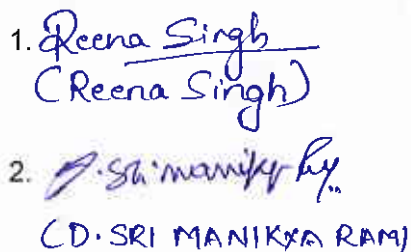 1. Reena Singh
(Reena Singh)
2. D. Sri manikya
(D. SRI MANIKYA RAM)